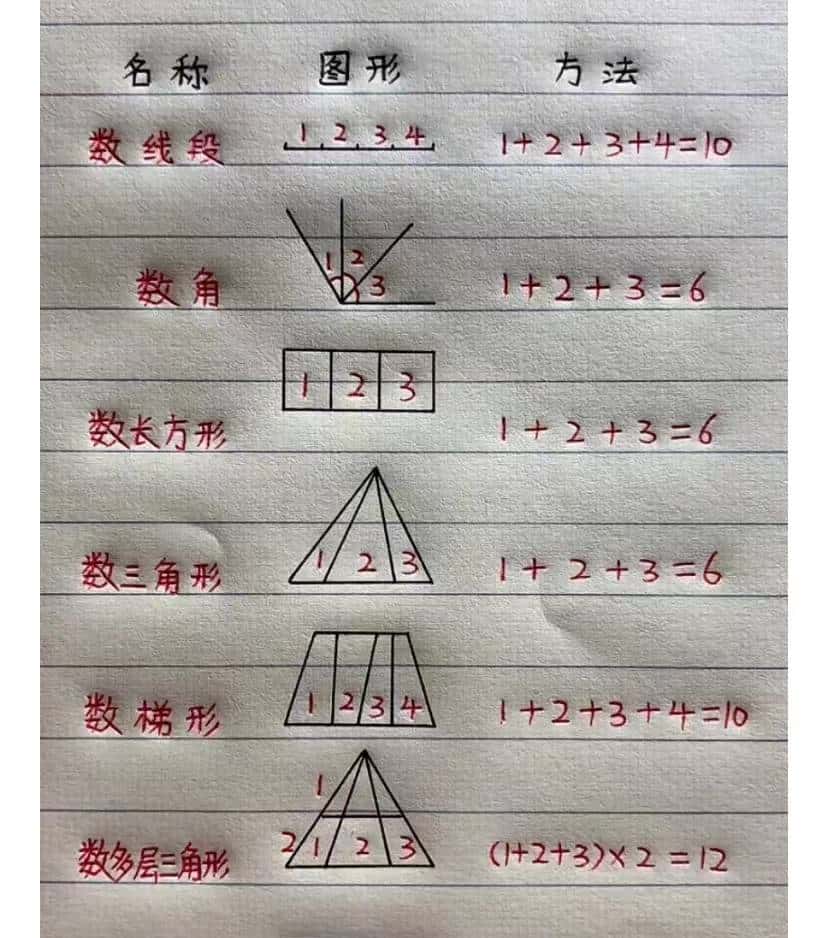 名称 图形 方法
数线段 1 2 3 4 1+2+3+4=10
数角 1 2 3 1+2+3=6
数长方形 1 2 3 1+2+3=6
数三角形 1 2 3 1+2+3=6
数梯形 1 2 3 4 1+2+3+4=10
1
数多层三角形 2 1 2 3 (1+2+3)×2=12